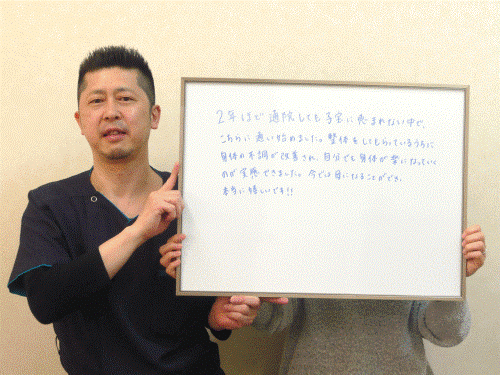 2年ほど通院しても子宝に恵まれない中で、
こちらに通い始めました。整体をしてもらっているうちに
身体の不調が改善され、自分でも身体が楽になっていく
のが実感できました。今では母になることができ、
本当に嬉しいです!!